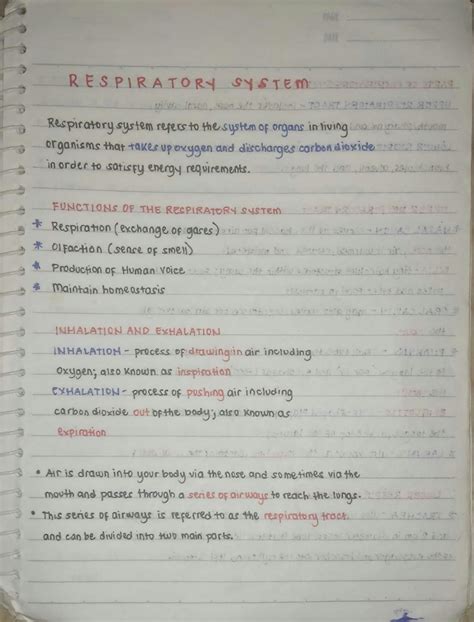 RESPIRATORY SYSTEM
Respiratory system refers to the system of organs in living
organisms that takes up oxygen and discharges carbon dioxide
in order to satisfy energy requirements.
FUNCTIONS OF THE RESPIRATORY SYSTEM
* Respiration (exchange of gases)
* Olfaction (sense of smell)
* Production of Human Voice
* Maintain homeostasis
INHALATION AND EXHALATION
INHALATION - process of drawing in air including
oxygen; also known as inspiration
EXHALATION - process of pushing air including
carbon dioxide out of the body; also known as
expiration
• Air is drawn into your body via the nose and sometimes via the
mouth and passes through a series of airways to reach the lungs.
• This series of airways is referred to as the respiratory tract
and can be divided into two main parts.